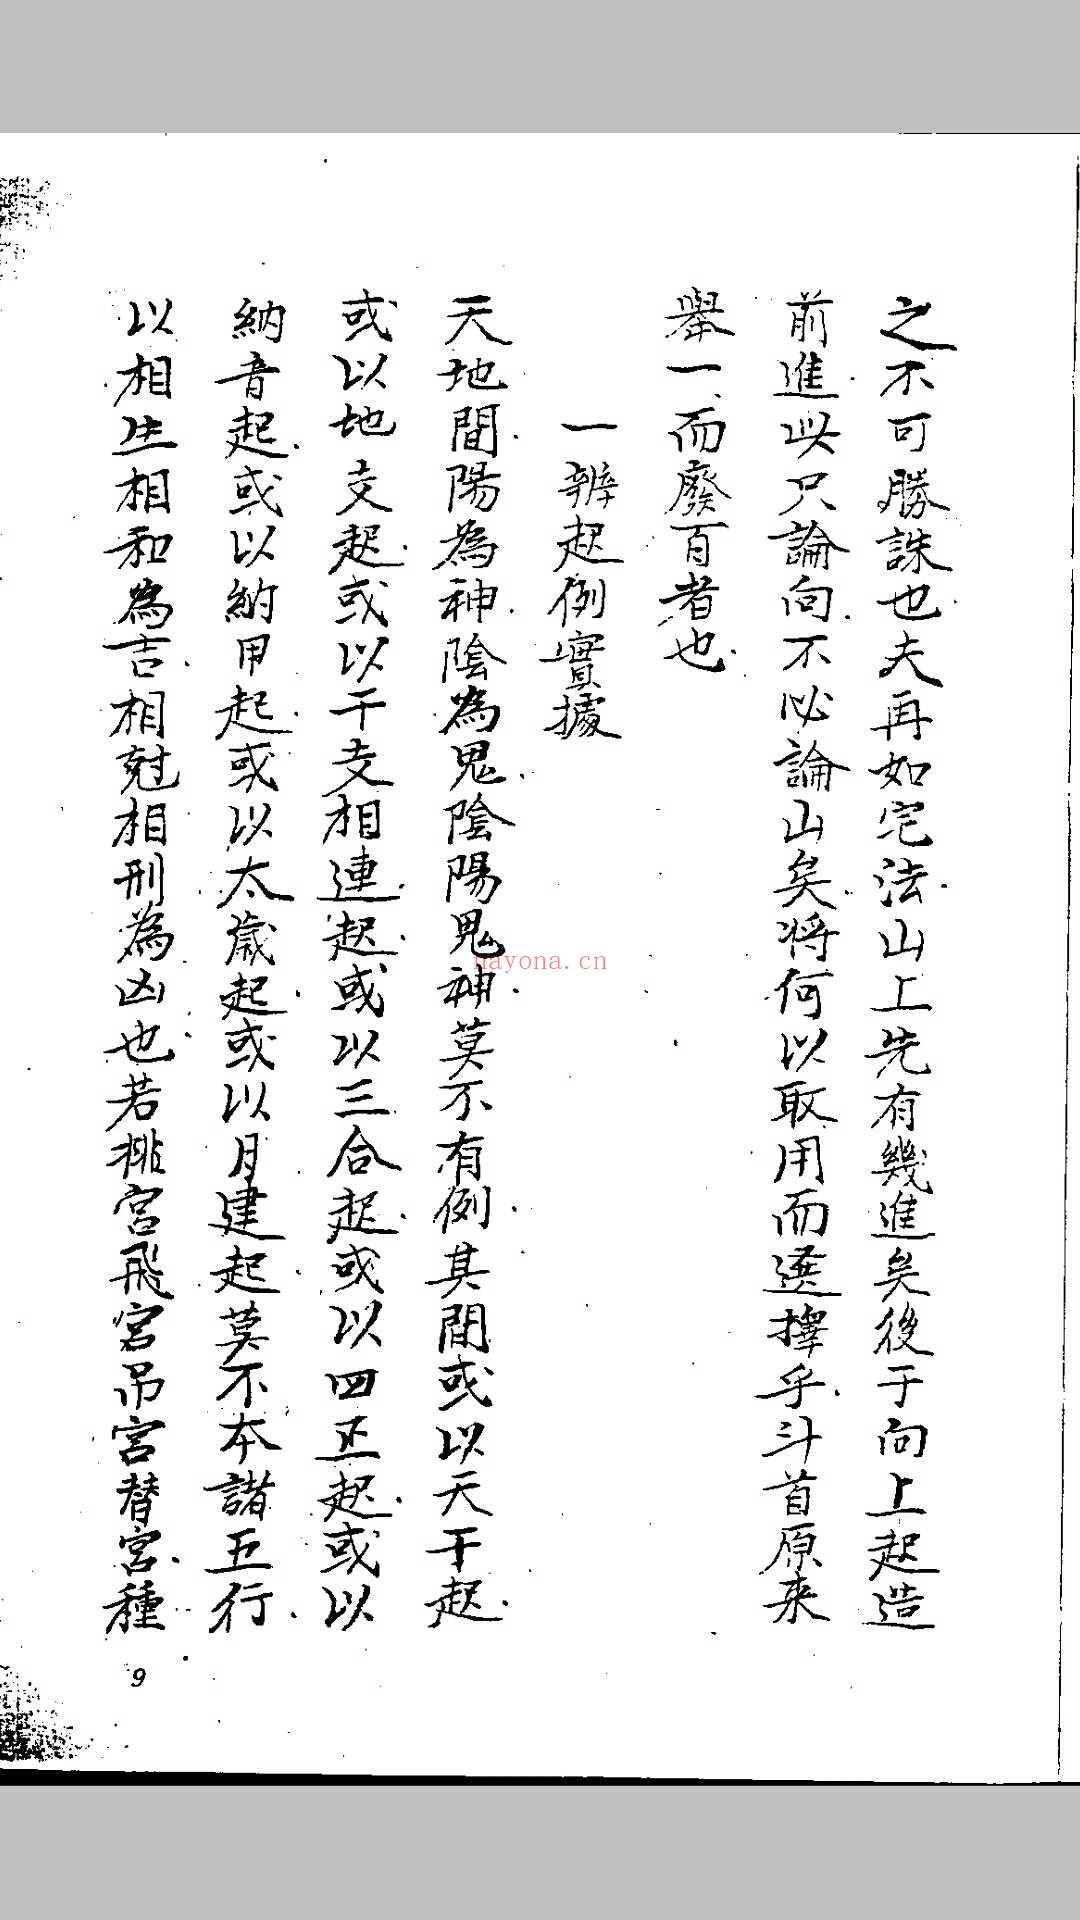 之不可勝誅也夫再如宅法山上先有幾進矣後于向上起造
前進此只論向不必論山矣將何以取用而選擇乎斗首原来
舉一而廢百者也
一辨起例實據
天地間陽為神陰為鬼陰陽鬼神莫不有例其間或以天干起
或以地支起或以干支相連起或以三合起或以四正起或以
納音起或以納甲起或以太歲起或以月建起莫不本諸五行
以相生相和為吉相尅相刑為凶也若挑宮飛宮吊宮替宮種
9
nayona.cn